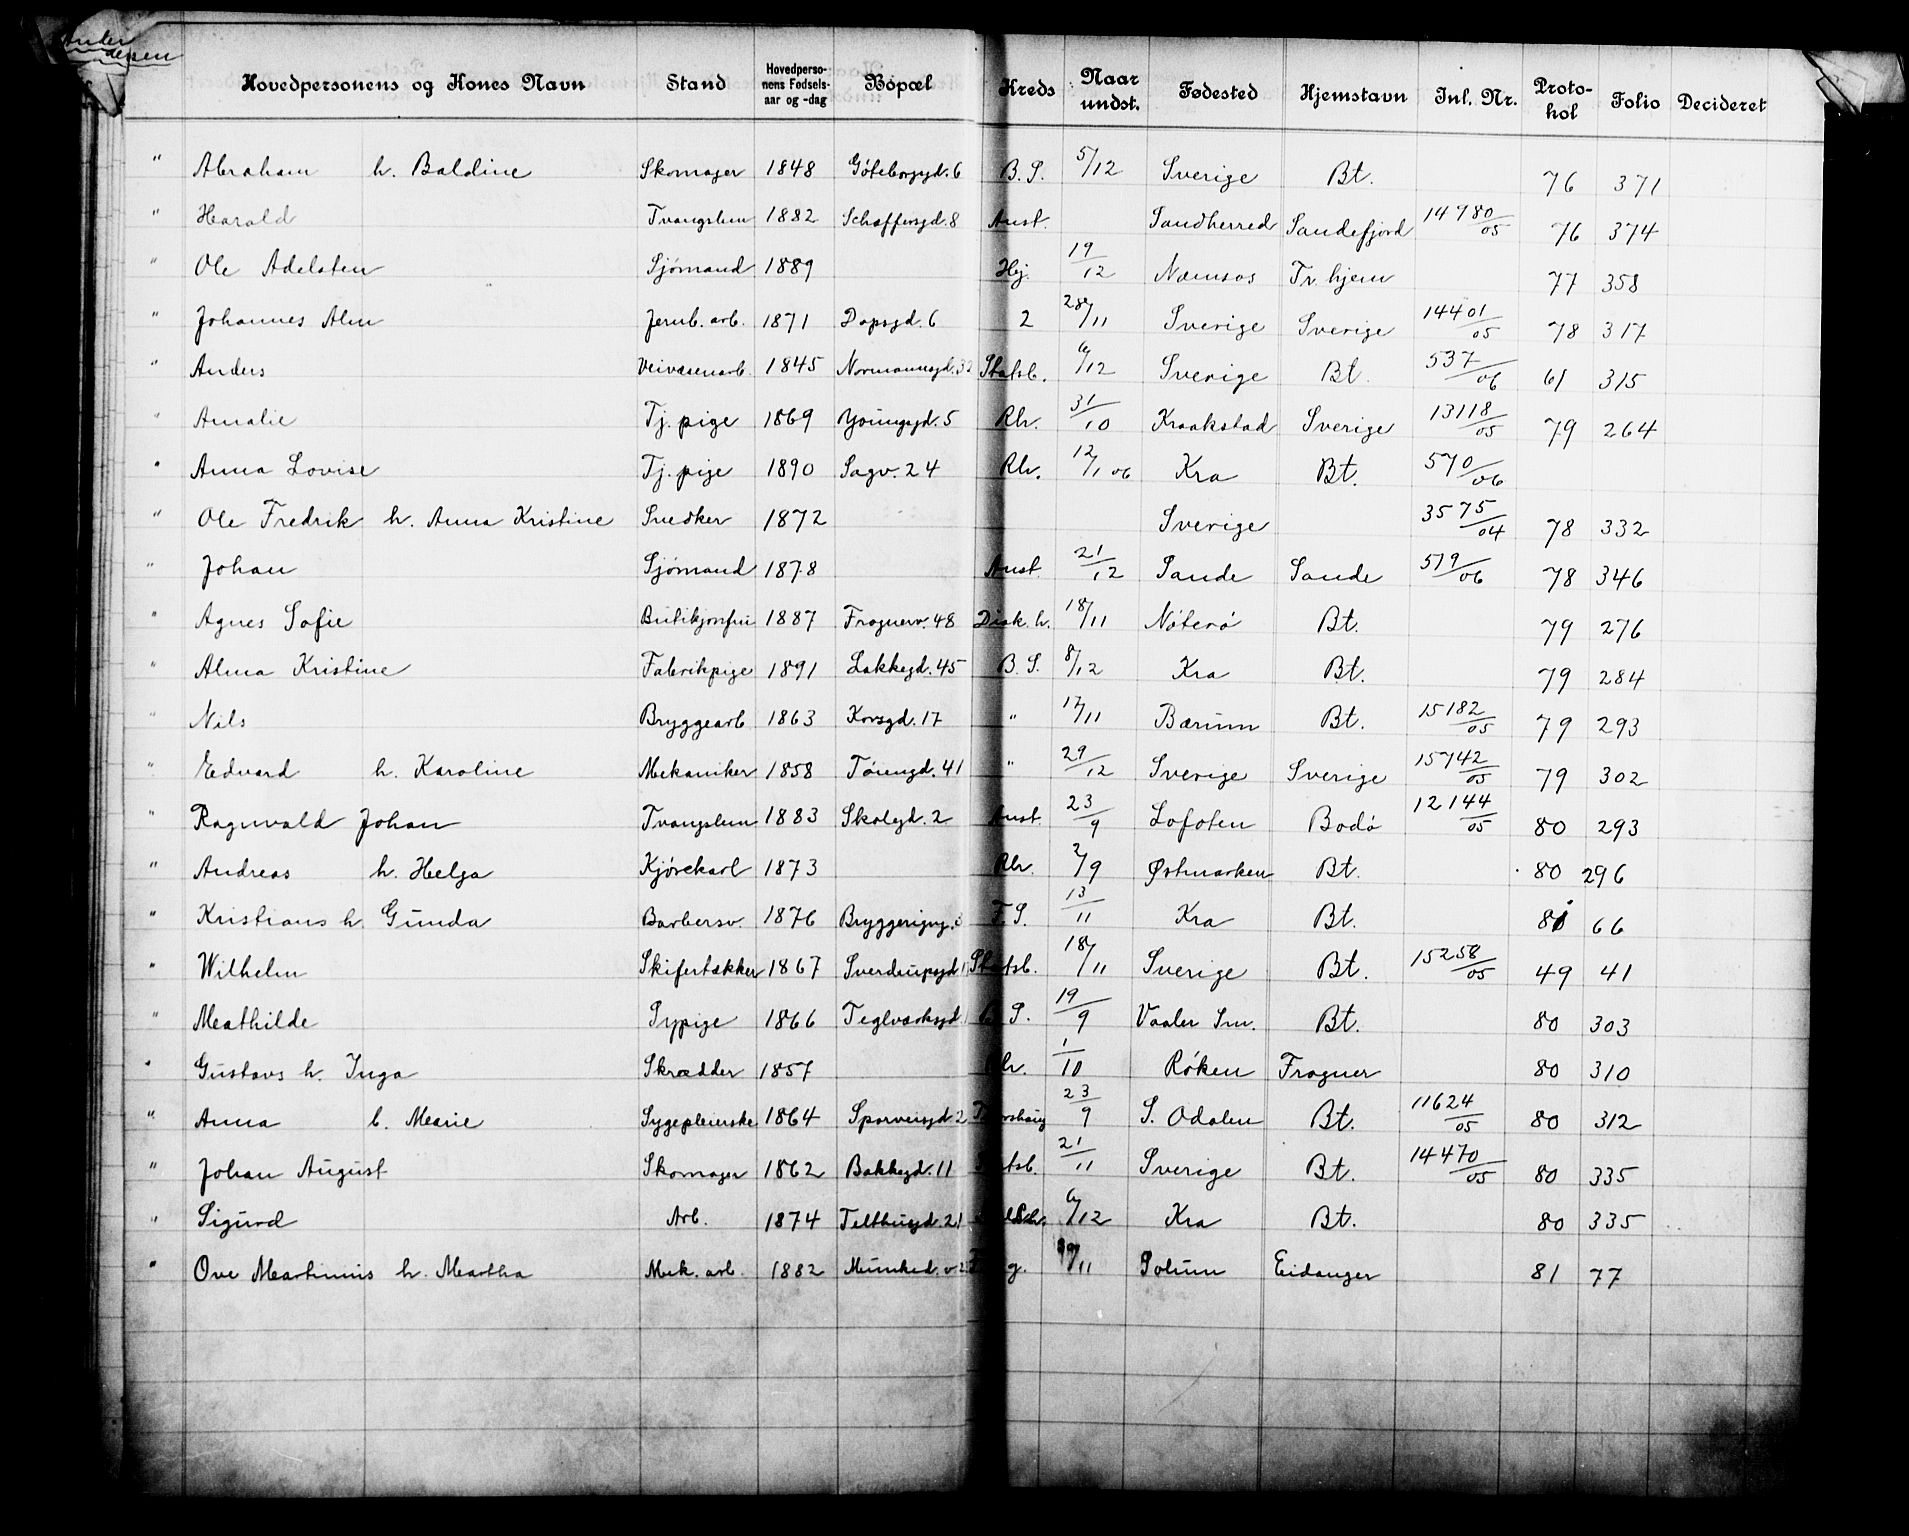 Andersen
Hovedpersonens og Kones Navn Stand Hovedpersonens Fødselsaar og -dag Bopæl Kreds Naar undst. Fødested Hjemstavn Inl. Nr. Protokol Folio Decideret
" Abraham h. Baldine Skomager 1848 Göteborggd. 6 B. S. 5/12 Sverige Bt. 76 371
" Harald Tvangslem 1882 Schaffersgd. 8 Anst. Sandherred Sandefjord 14980/05 76 374
" Ole Adelsten Sjömand 1889 Hej. 19/12 Namsos Tr. hjem 77 358
" Johannes Alm Jernb. arb. 1871 Dopsgd. 6 2 28/11 Sverige Sverige 14401/05 78 317
" Anders Veivæsenarb. 1845 Normannsgd. 32 Statsb. 6/12 Sverige Bt. 537/06 61 315
" Amalie Tj. pige 1869 Youngsgd. 5 Rh. 31/10 Kraakstad Sverige 13118/05 79 264
" Anna Lovise Tj. pige 1890 Sagv. 24 Rh. 12/1 06 Kra Bt. 570/06
" Ole Fredrik h. Anna Kristine Snedker 1872 Sverige 3575/04 78 332
" Johan Sjömand 1878 Anst. 21/12 Sande Sande 579/06 78 346
" Agnes Sofie Butikjomfru 1887 Frognerv. 48 Diak. h. 18/11 Nöterö Bt. 79 276
" Alma Kristine Fabrikpige 1891 Lakkegd. 45 B. S. 8/12 Kra Bt. 79 284
" Nils Bryggearb 1863 Korsgd. 17 " 17/11 Bærum Bt. 15182/05 79 293
" Edvard h. Karoline Mekaniker 1858 Töiengd. 41 " 29/12 Sverige Sverige 15742/05 79 302
" Ragnvald Johan Tvangslem 1883 Skolegd. 2 Anst. 23/9 Lofoten Bodö 12144/05 80 293
" Andreas h. Helga Kjörekarl 1873 Rh. 2/9 Østmarken Bt. 80 296
" Kristians h. Gunda Barbersv. 1876 F. S. 13/11 Kra Bt. 81 66
" Wilhelm Skifertækker 1867 Sverdrupsgd Statsb. 18/11 Sverige Bt. 15258/05 49 41
" Mathilde Sypige 1866 Teglverksgd S. 19/9 Vaaler Sm. Bt. 80 303
" Gustavs h. Inga Skrædder 1857 Rh. 1/10 Röken Frogner 80 310
" Anna b. Marie Sygepleierske 1864 Sporveisgd. 2 23/9 S. Odalen Bt. 11624/05 80 312
" Johan August Skomager 1862 Bakkegd. 11 Statsb. 21/11 Sverige Bt. 14470/05 80 335
" Sigurd Arb. 1874 Telthusgd. 21 6/12 Kra Bt. 80 335
" Ove Martinius h. Martha Mek. arb. 1882 Munked. v. /11 Solum Eidanger 81 77